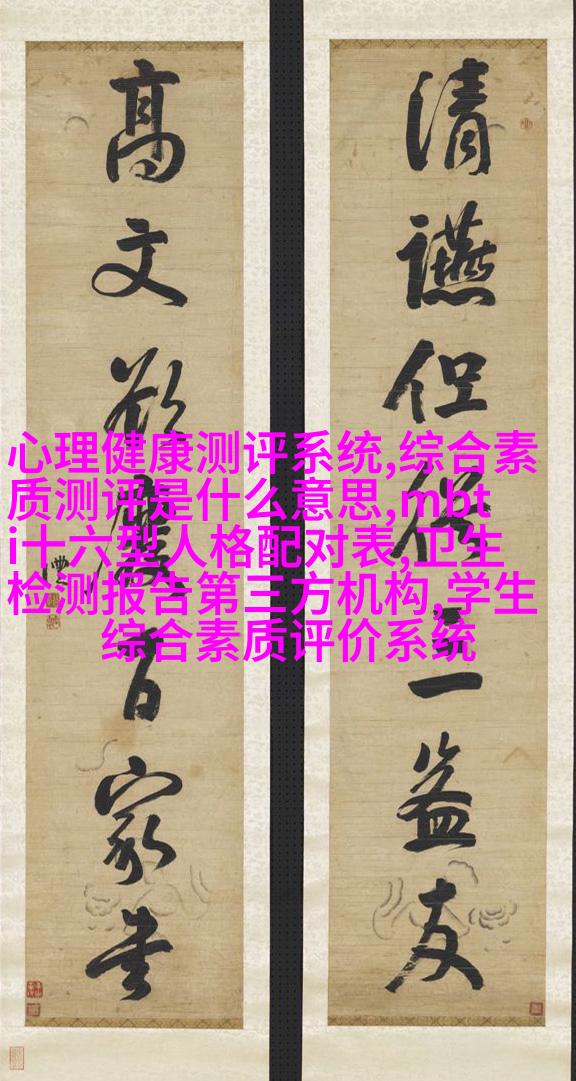 清讌但三益友
高文欲百家書
心理健康测评系统,综合素
质测评是什么意思,mbt
i十六型人格配对表,卫生
检测报告第三方机构,学生
综合素质评价系统